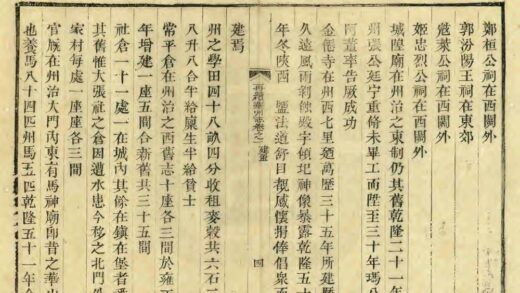 鄭桓公祠在西關外
郭汾陽王祠在東郊
寇萊公祠在西關外
姬忠烈公祠在西關外
城隍廟在州治之東制仍其舊乾隆二十一年
州張公廷宁重脩未畢工而陞至三十年瑪八
阿蓋率告厥成功
金龍寺在州西七里廼萬歷三十五年所建歷
久遠風雨剝蝕殿宇傾圯神像暴露乾隆五十
年冬陝西 鹽法道舒目覩感懷捐俸倡衆而
再續華州志卷之一 建置 四
建焉
州之學田四十八畝四分收租麥穀共六石二
八升八合半給廩生半給貧士
常平倉在州治之西舊志十座各三間於雍正
年增建一座五間合新舊共三十五間
社倉一十一處一在城內其餘在鎮在堡者
其舊惟大張社之倉因遭水患今移之北門外
家村每處一座各三間
官廐在州大門內東有馬神廟即昔之華山
也養馬八十四匹州馬五匹乾隆五十一年